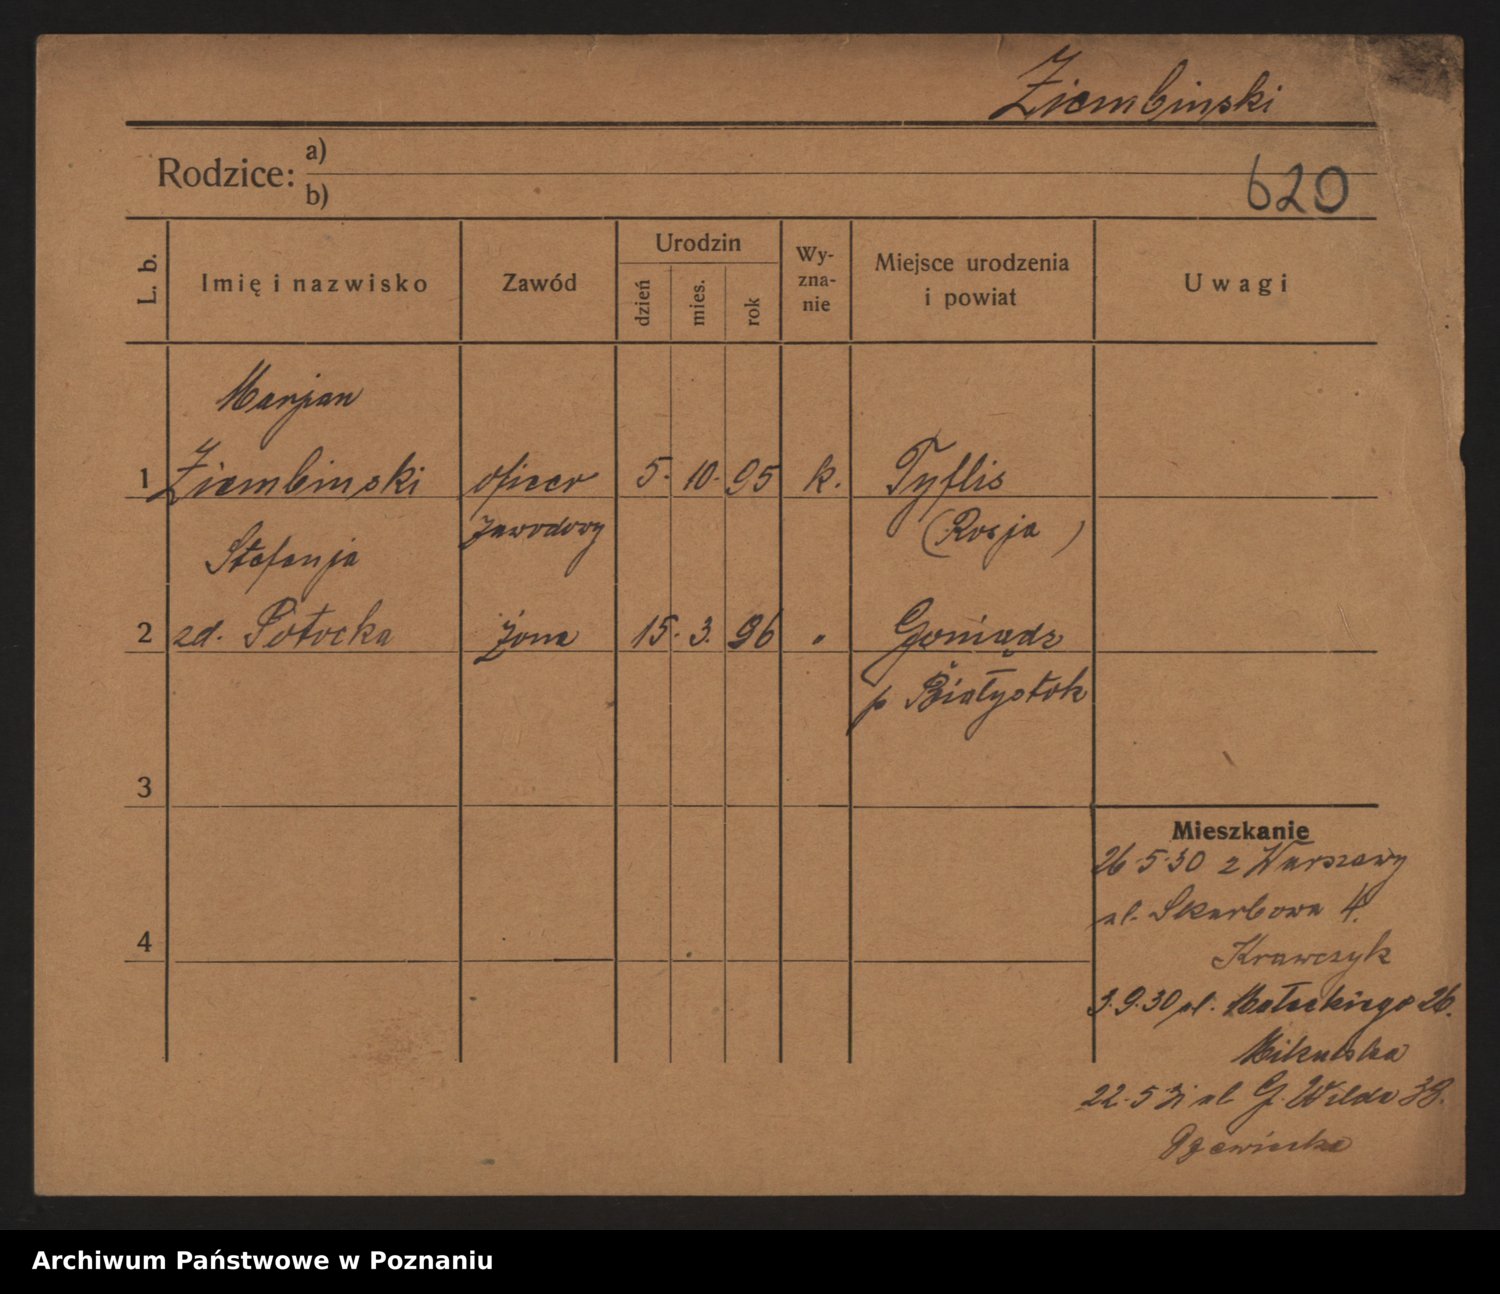 Ziembinski
Rodzice: a)
b)
620
L. b.
Imię i nazwisko
Zawód
Urodzin
dzień
mies.
rok
Wy-
zna-
nie
Miejsce urodzenia
i powiat
Uwagi
Marjan
1 Ziembinski oficer 5. 10. 95 k. Tyflis
zawodowy (Rosja)
Stefanja
2 zd. Potocka żona 15. 3. 96 " Goniądz
p Białystok
3
Mieszkanie
26.5.30 z Warszawy
ul. Skarbowa 4.
4
Krawczyk
3.9.30 ul. Małeckiego 26.
Mikulska
22.5.31 ul G. Wilda 39.
Archiwum Państwowe w Poznaniu